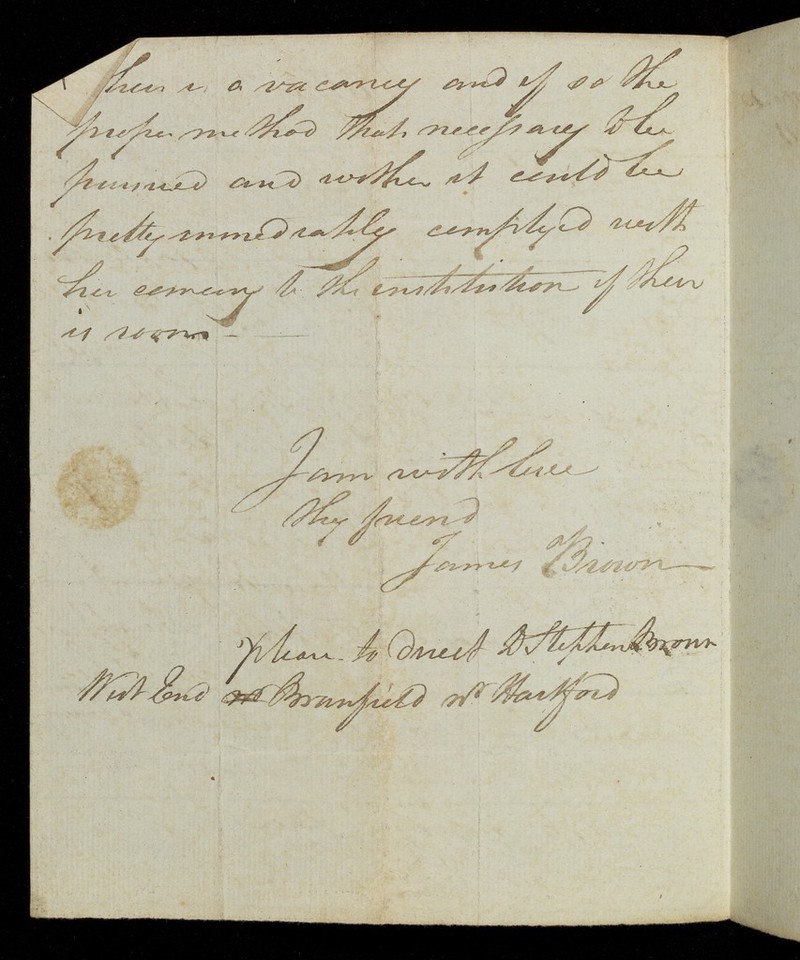 their is a vacancy and if so the
proper method thats necessary to be
pursued and wether it could be
pretty immediately complyed with
her comeing to the institution if their
is room
I am with love
thy friend
James Brown
please to direct D Stephen Brown
West End Bramfield nr Hartford